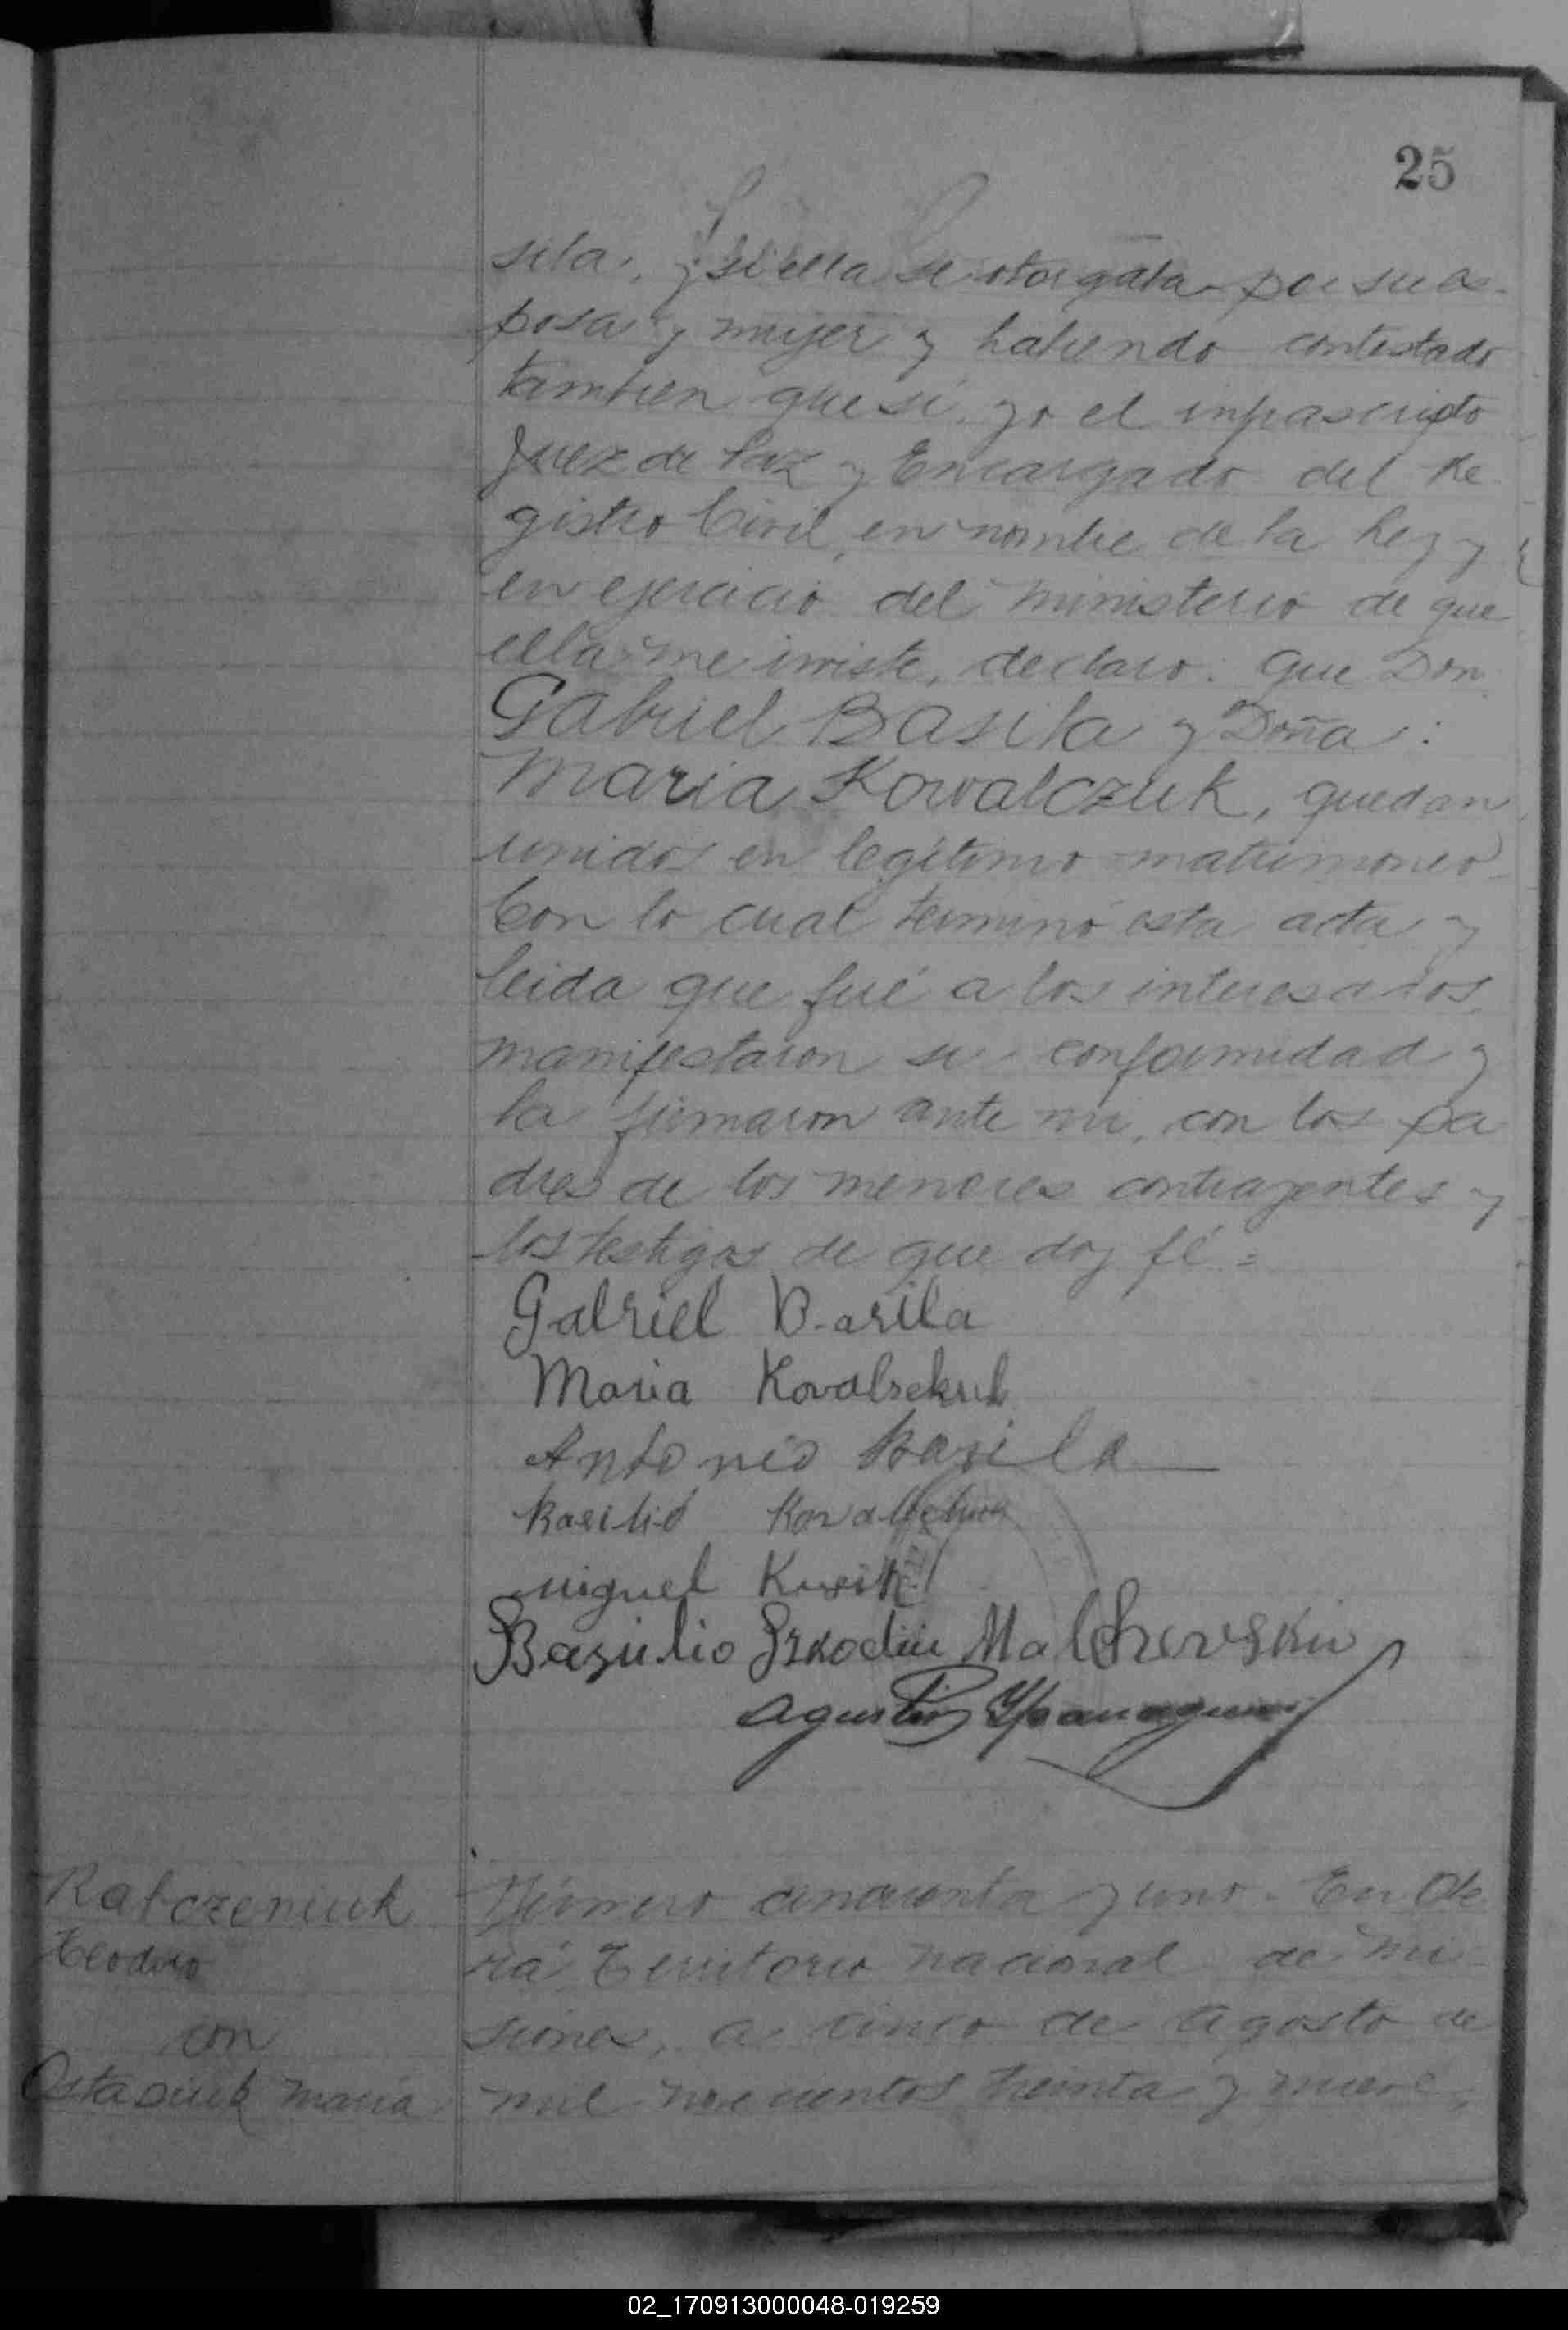 25
sila, y si ella se otorgaba por su es-
posa y mujer y habiendo contestado
tambien que si, yo el infrascripto
Juez de Paz y Encargado del Re
gistro Civil, en nombre de la Ley y
en ejercicio del ministerio de que
ella me inviste, declaro: que Don
Gabriel Basila y Doña:
Maria Kowalczuk, quedan
unidos en legítimo matrimonio
Con lo cual terminó esta acta y
leida que fué a los interesados
manifestaron su conformidad y
la firmaron ante mi, con los pa
dres de los menores contrayentes y
los testigos de que doy fé =
Gabriel Basila
Maria
Antonio Basila
Basilio
Miguel
Basilio
Agustin
Número cincuenta y uno. En Obe
rá Territorio nacional de Mi
siones, a cinco de Agosto de
mil novecientos treinta y nueve,
Ratczeniuk
Teodoro
con
Ostasiuk Maria
02_170913000048-019259